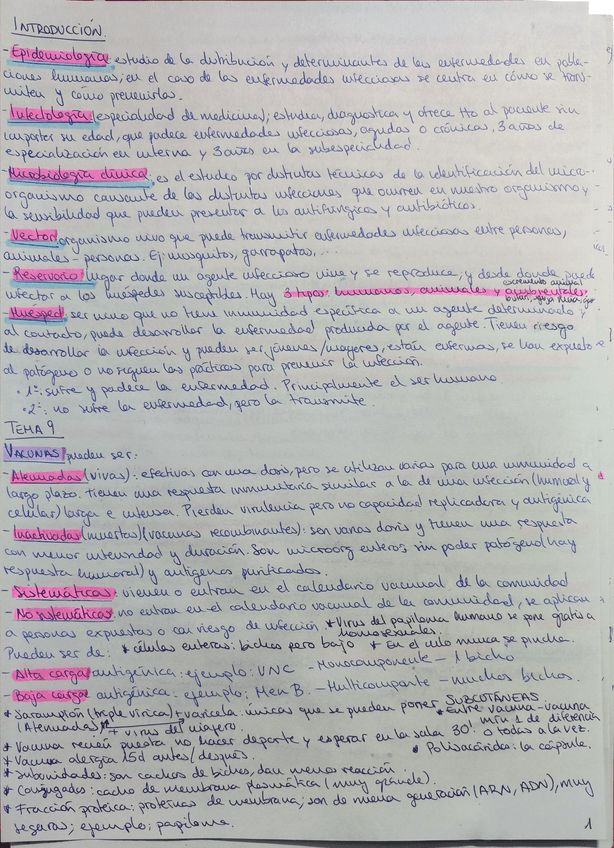 INTRODUCCIÓN.
- Epidemiología: estudio de la distribución y determinantes de las enfermedades en pobla-
ciones humanas; en el caso de las enfermedades infecciosas se centra en cómo se trans-
miten y cómo prevenirlas.
- Infectología: (especialidad de medicina); estudia, diagnostica y ofrece tto al paciente sin
importar su edad, que padece enfermedades infecciosas, agudas o crónicas. 3 años de
especialización en interna y 3 años en la subespecialidad.
- Microbiología clínica: es el estudio por distintas técnicas de la identificación del micro-
organismo causante de las distintas infecciones que ocurren en nuestro organismo y
la sensibilidad que pueden presentar a los antifúngicos y antibióticos.
- Vector: organismo vivo que puede transmitir enfermedades infecciosas entre personas,
animales - personas. Ej: mosquitos, garrapatas, ...
- Reservorio: lugar donde un agente infeccioso vive y se reproduce, y desde donde puede
infectar a los huéspedes susceptibles. Hay 3 tipos: humanos, animales y ambientales.
excremento animal
- Huésped: ser vivo que no tiene inmunidad específica a un agente determinado y
al contacto, puede desarrollar la enfermedad producida por el agente. Tienen riesgo
de desarrollar la infección y pueden ser jóvenes/mayores, están enfermos, se han expuesto
al patógeno o no siguen las prácticas para prevenir la infección.
• 1º: sufre y padece la enfermedad. Principalmente el ser humano
• 2º: no sufre la enfermedad, pero la transmite.
TEMA 9
VACUNAS pueden ser:
- Atenuadas (vivas): efectivas con una dosis, pero se utilizan varias para una inmunidad a
largo plazo. tienen una respuesta inmunitaria similar a la de una infección (humoral y
celular) larga e intensa. Pierden virulencia pero no capacidad replicadora y antigénica
- Inactivadas (muertas) (vacunas recombinantes): son varias dosis y tienen una respuesta
con menor intensidad y duración. Son microorg enteros sin poder patógeno (hay
respuesta humoral) y antígenos purificados.
- Sistemáticas: vienen o entran en el calendario vacunal de la comunidad
- No sistemáticas: no entran en el calendario vacunal de la comunidad, se aplican
a personas expuestas o con riesgo de infección * Virus del papiloma humano se pone gratis a
homosexuales.
Pueden ser de: * células enteras: bichos pero bajo * En el culo nunca se pincha.
- Alta carga antigénica: ejemplo: VNC - Monocomponente - 1 bicho
- Baja carga antigénica: ejemplo; Men B. - Multicomponte - muchos bichos.
* Sarampión (triple vírica) + varicela. únicas que se pueden poner SUBCUTÁNEAS
(Atenuadas) + virus del viajero. * Entre vacuna - vacuna
mín 1 de diferencia
* Vacuna recién puesta no hacer deporte y esperar en la sala 30'. o todas a la vez.
* Vacuna alergia 15d antes/después. * Polisacárida: la cápsula.
* Subunidades: son cachos de bichos, dan menos reacción.
* Conjugadas: cacho de membrana plasmática (muy grande).
* Fracción proteica: proteínas de membrana; son de nueva generación (ARN, ADN), muy
seguras; ejemplo: papiloma.
1